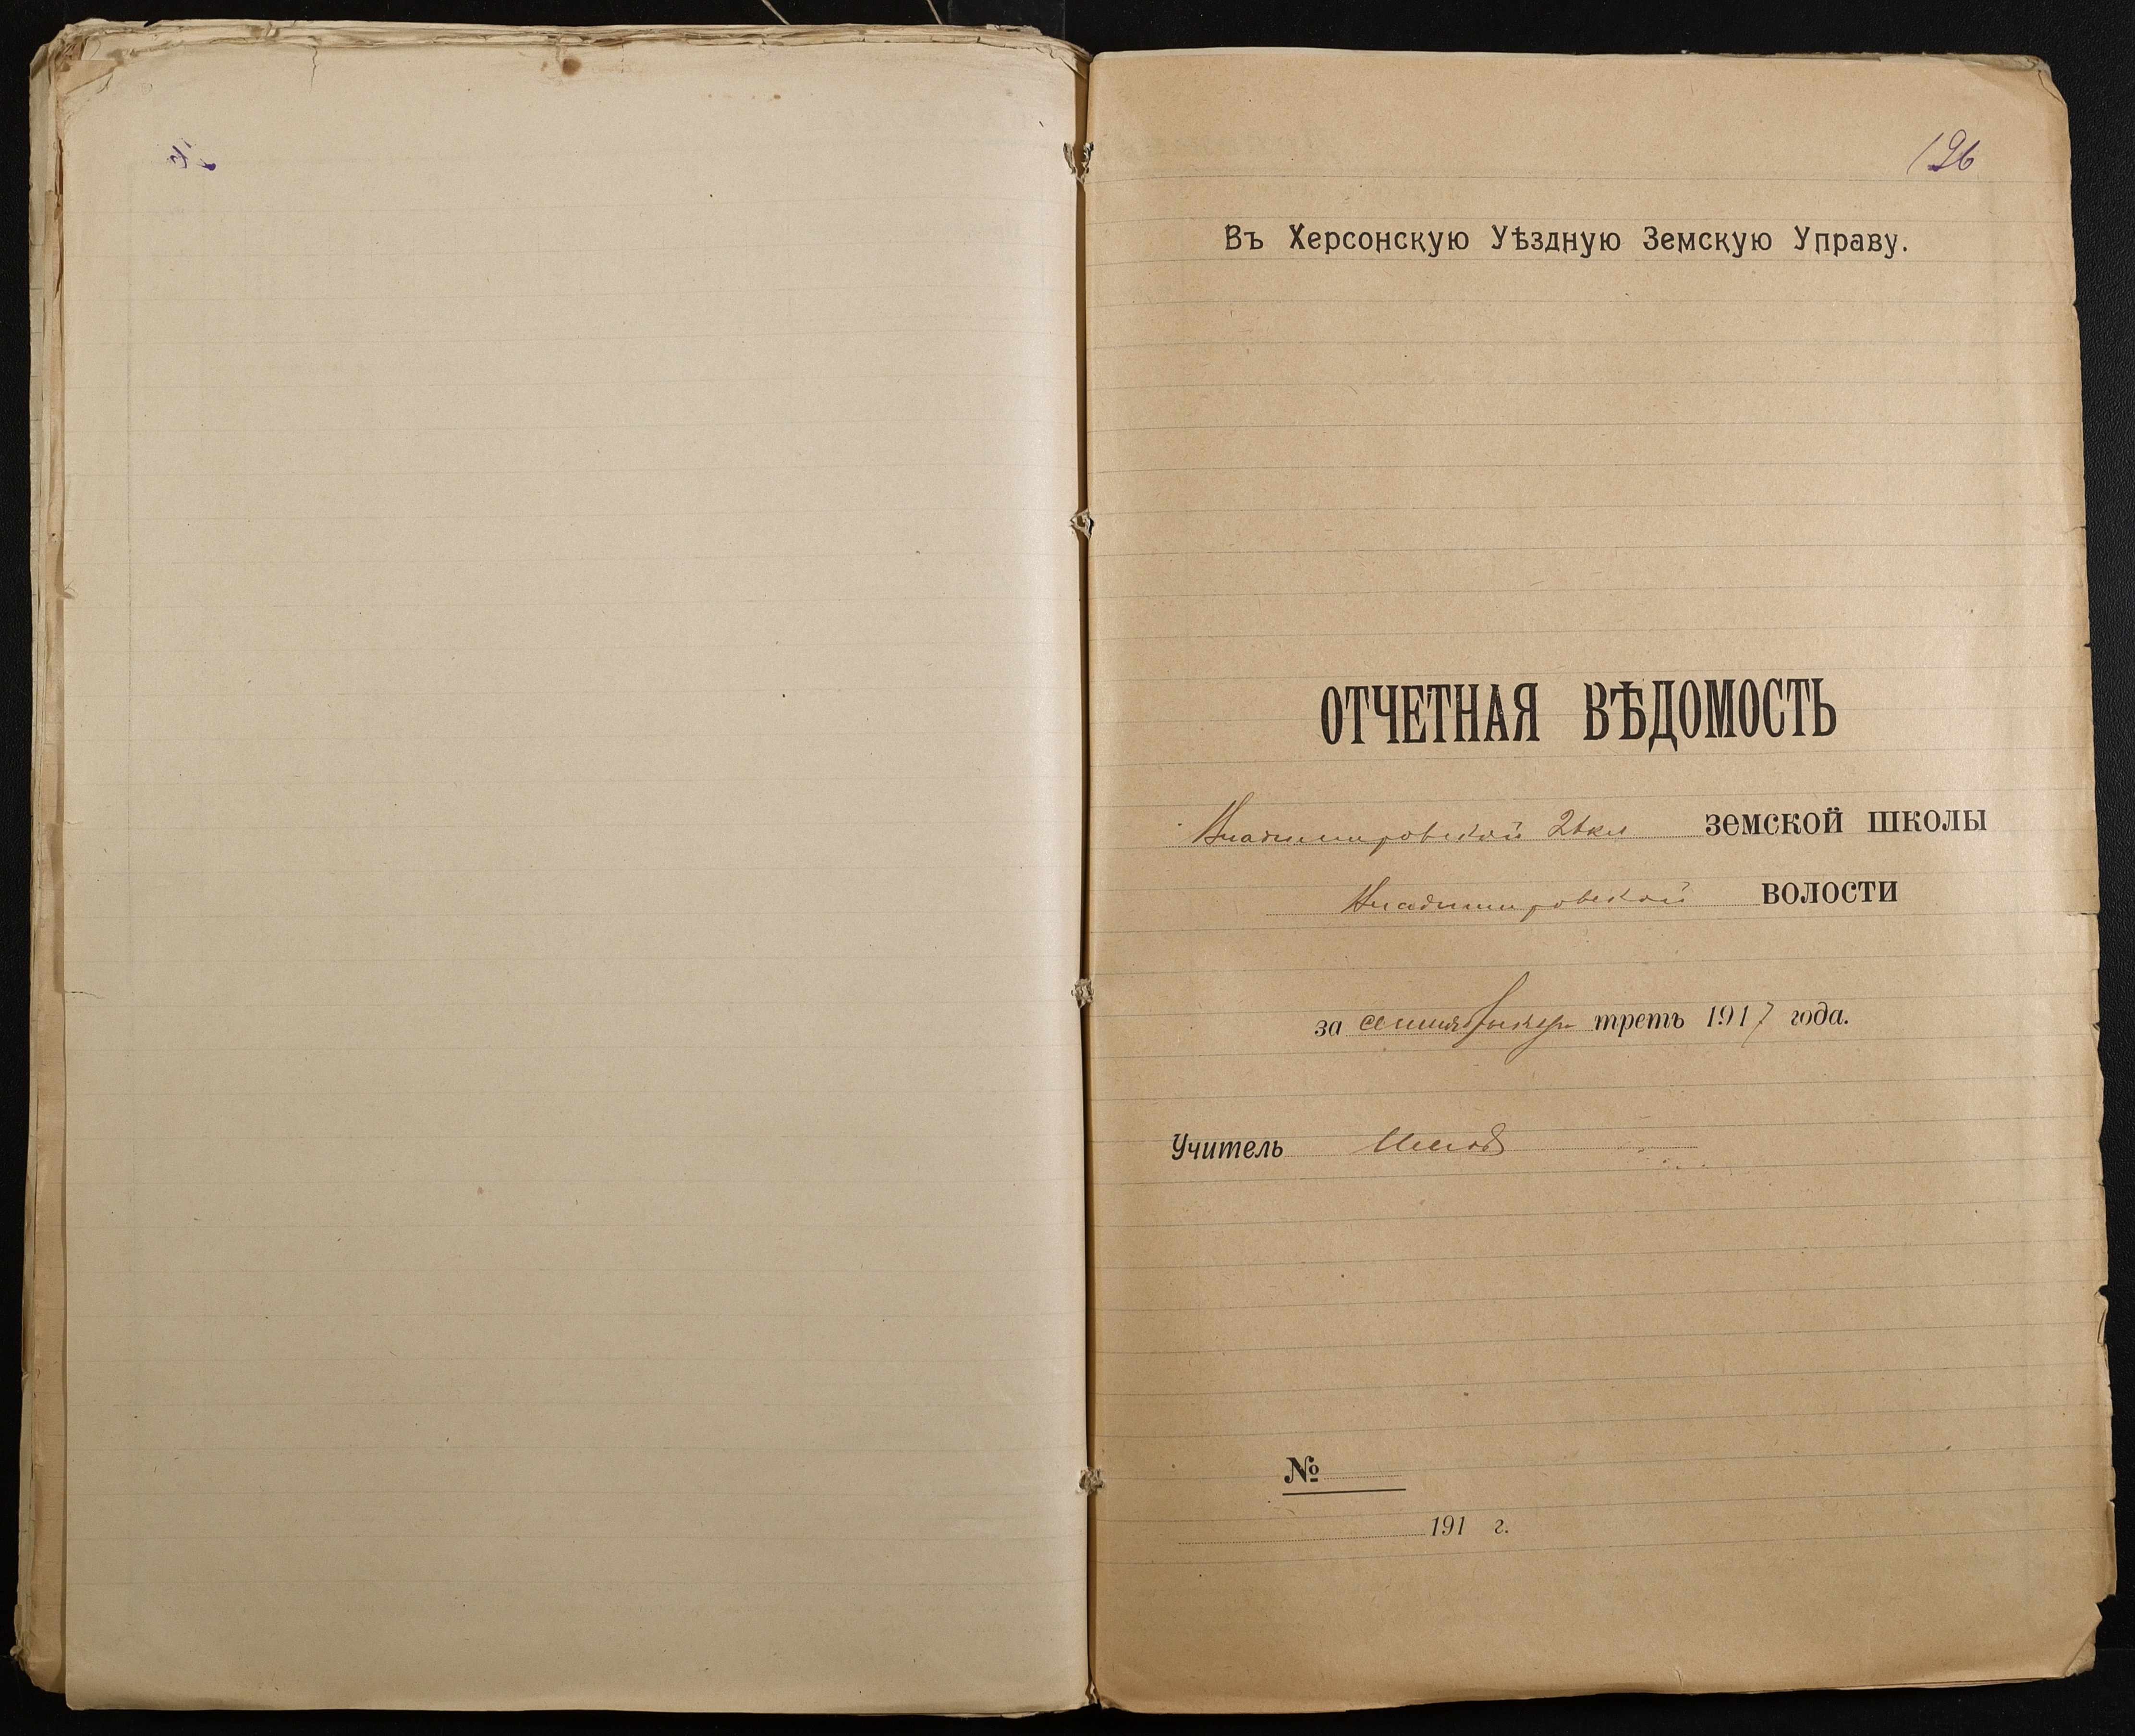 196
Въ Херсонскую Уѣздную Земскую Управу.
ОТЧЕТНАЯ ВѢДОМОСТЬ
Владимировской 2хкл земской школы
Владимировской волости
за сентябрьскую треть 1917 года.
Учитель
№
191 г.